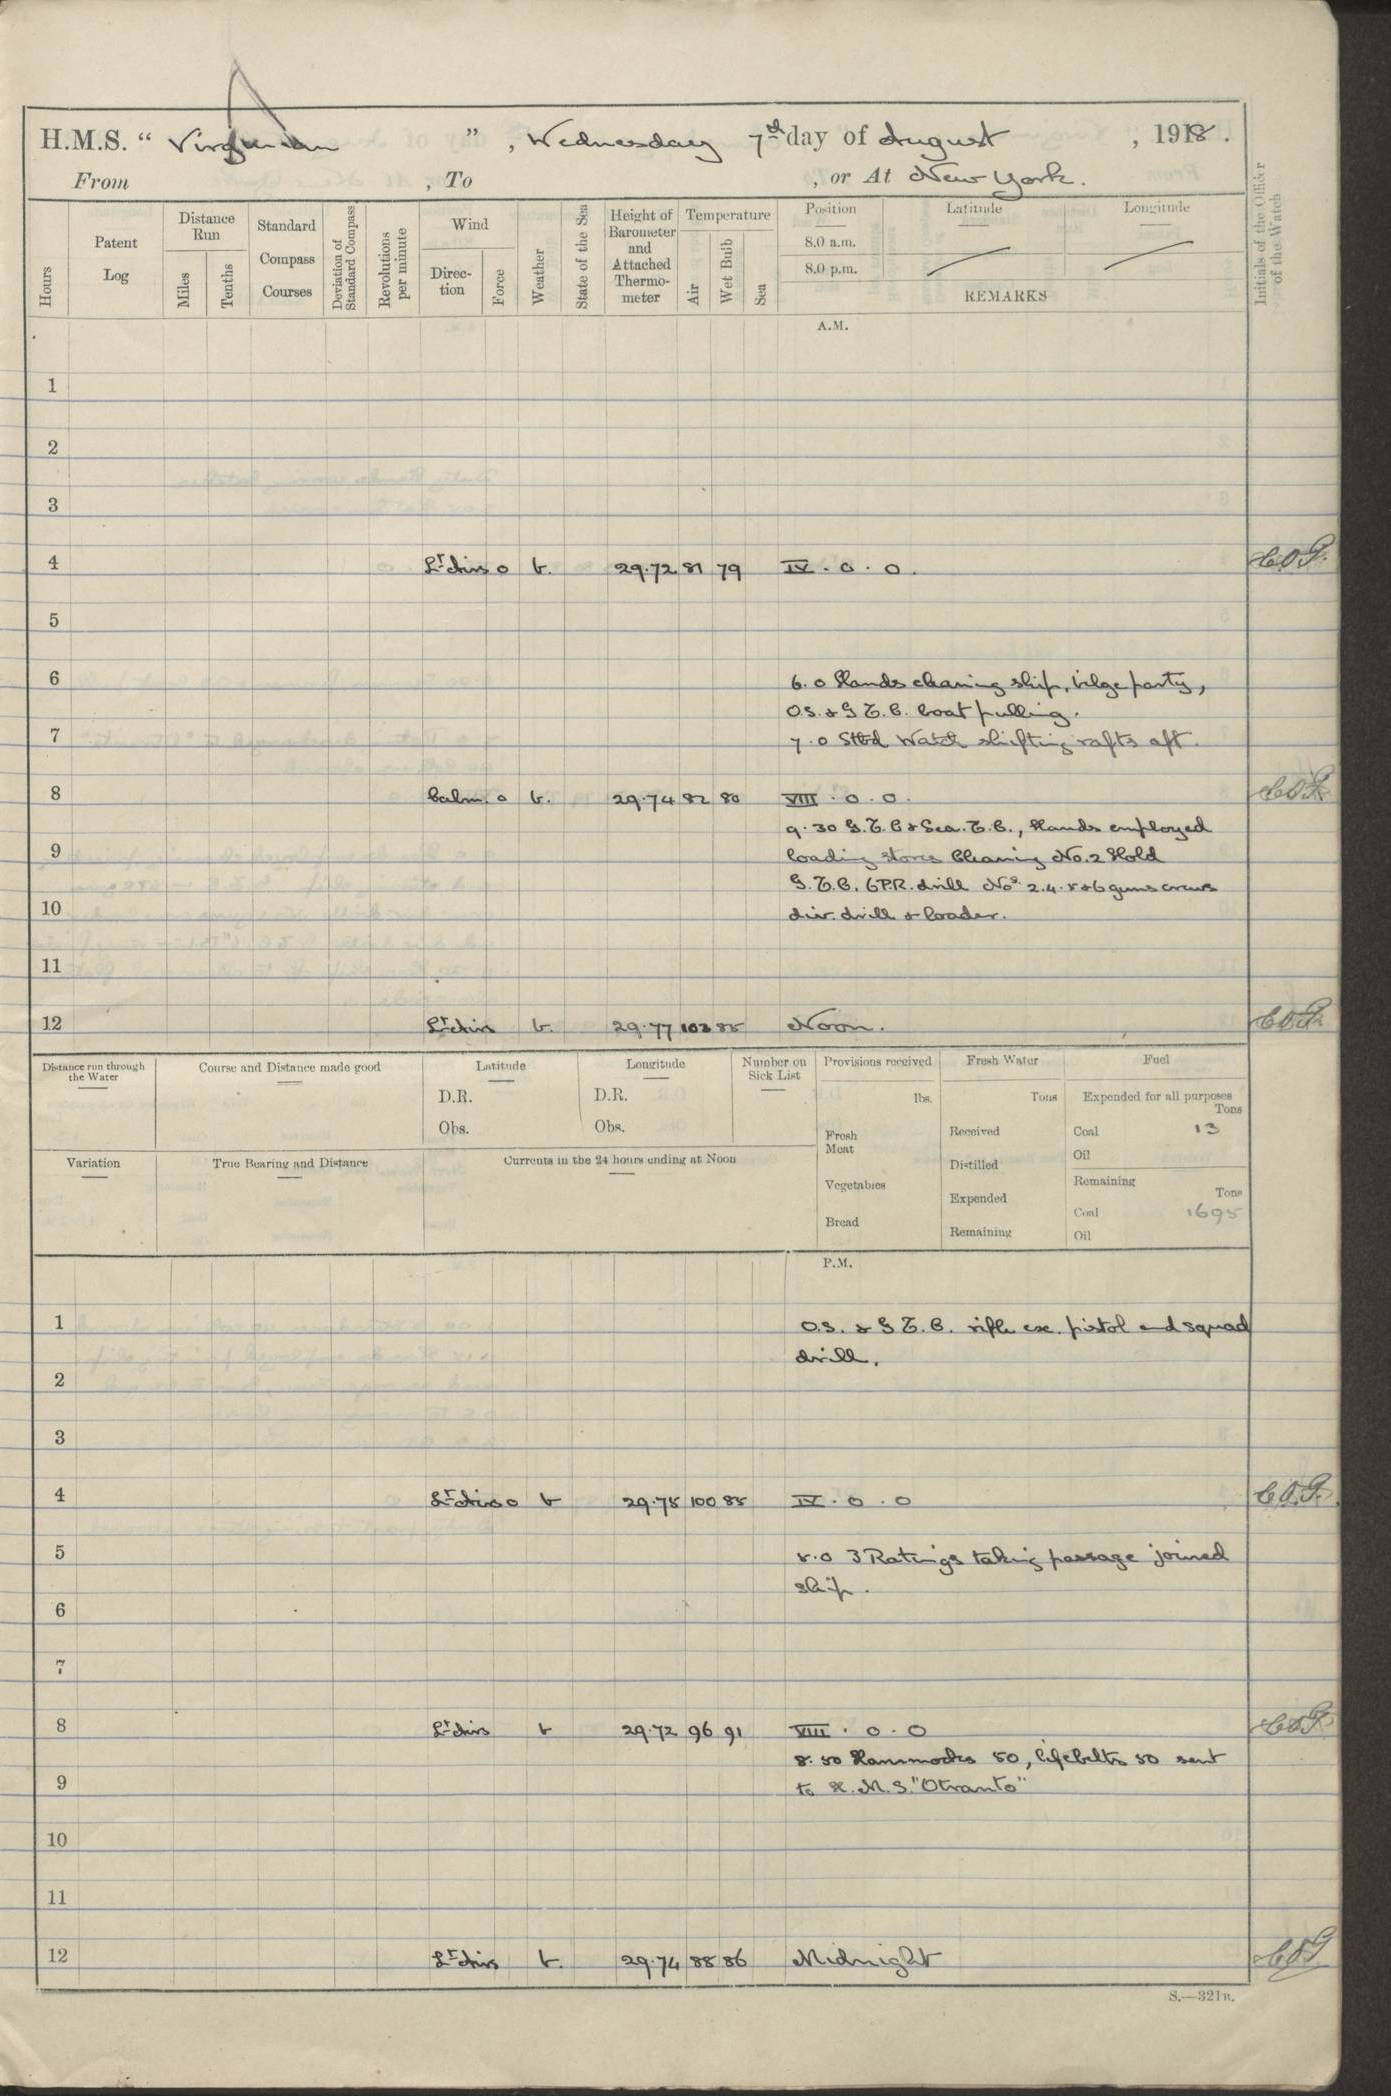 H.M.S. “ Virginian ” , Wednesday 7th day of August , 1918 .
From , To , or At New York.
Hours
Patent Log
Distance Run
Miles
Tenths
Standard Compass Courses
Deviation of Standard Compass
Revolutions per minute
Wind
Direc-tion
Force
Weather
State of the Sea
Height of Barometer and Attached Thermo-meter
Temperature
Air
Wet Bulb
Sea
Position Latitude Longitude
8.0 a.m.
8.0 p.m.
REMARKS
Initials of the Officer of the Watch
A.M.
1
2
3
4 Lt airs 0 b. 29.72 81 79 IV . 0 . 0 .
5
6 6. 0 Hands cleaning ship, bilge party,
O.S. & G T. C. boat pulling.
7 7 . 0 Stbd Watch shifting rafts aft.
8 Calm. 0 b. 29.74 82 80 VIII . 0 . 0 .
9. 30 G.T.C & Sea. T.C., Hands employed
9 loading stores Cleaning No. 2 Hold
G.T.C. 6 P.R. drill Nos 2. 4. 5 & 6 guns crews
10 div. drill & loader.
11
12 Lt airs b. 29.77 102 85 Noon.
Distance run through the Water
Course and Distance made good
Latitude
D.R.
Obs.
Longitude
D.R.
Obs.
Number on Sick List
Provisions received
lbs.
Fresh Meat
Vegetables
Bread
Fresh Water
Tons
Received
Distilled
Expended
Remaining
Fuel
Expended for all purposes
Tons
Coal 13
Oil
Remaining
Tons
Coal 1695
Oil
Variation
True Bearing and Distance
Currents in the 24 hours ending at Noon
P.M.
1 O.S. & G T. C. rifle ex. pistol and squad
drill.
2
3
4 Lt airs 0 b 29.75 100 85 IV . 0 . 0
5 5.0 3 Ratings taking passage joined
ship.
6
7
8 Lt airs b 29.72 96 91 VIII . 0 . 0
8. 50 Hammocks 50, lifebelts 50 sent
9 to H. M. S. "Otranto"
10
11
12 Lt airs b. 29.74 88 86 Midnight
S.—321B.